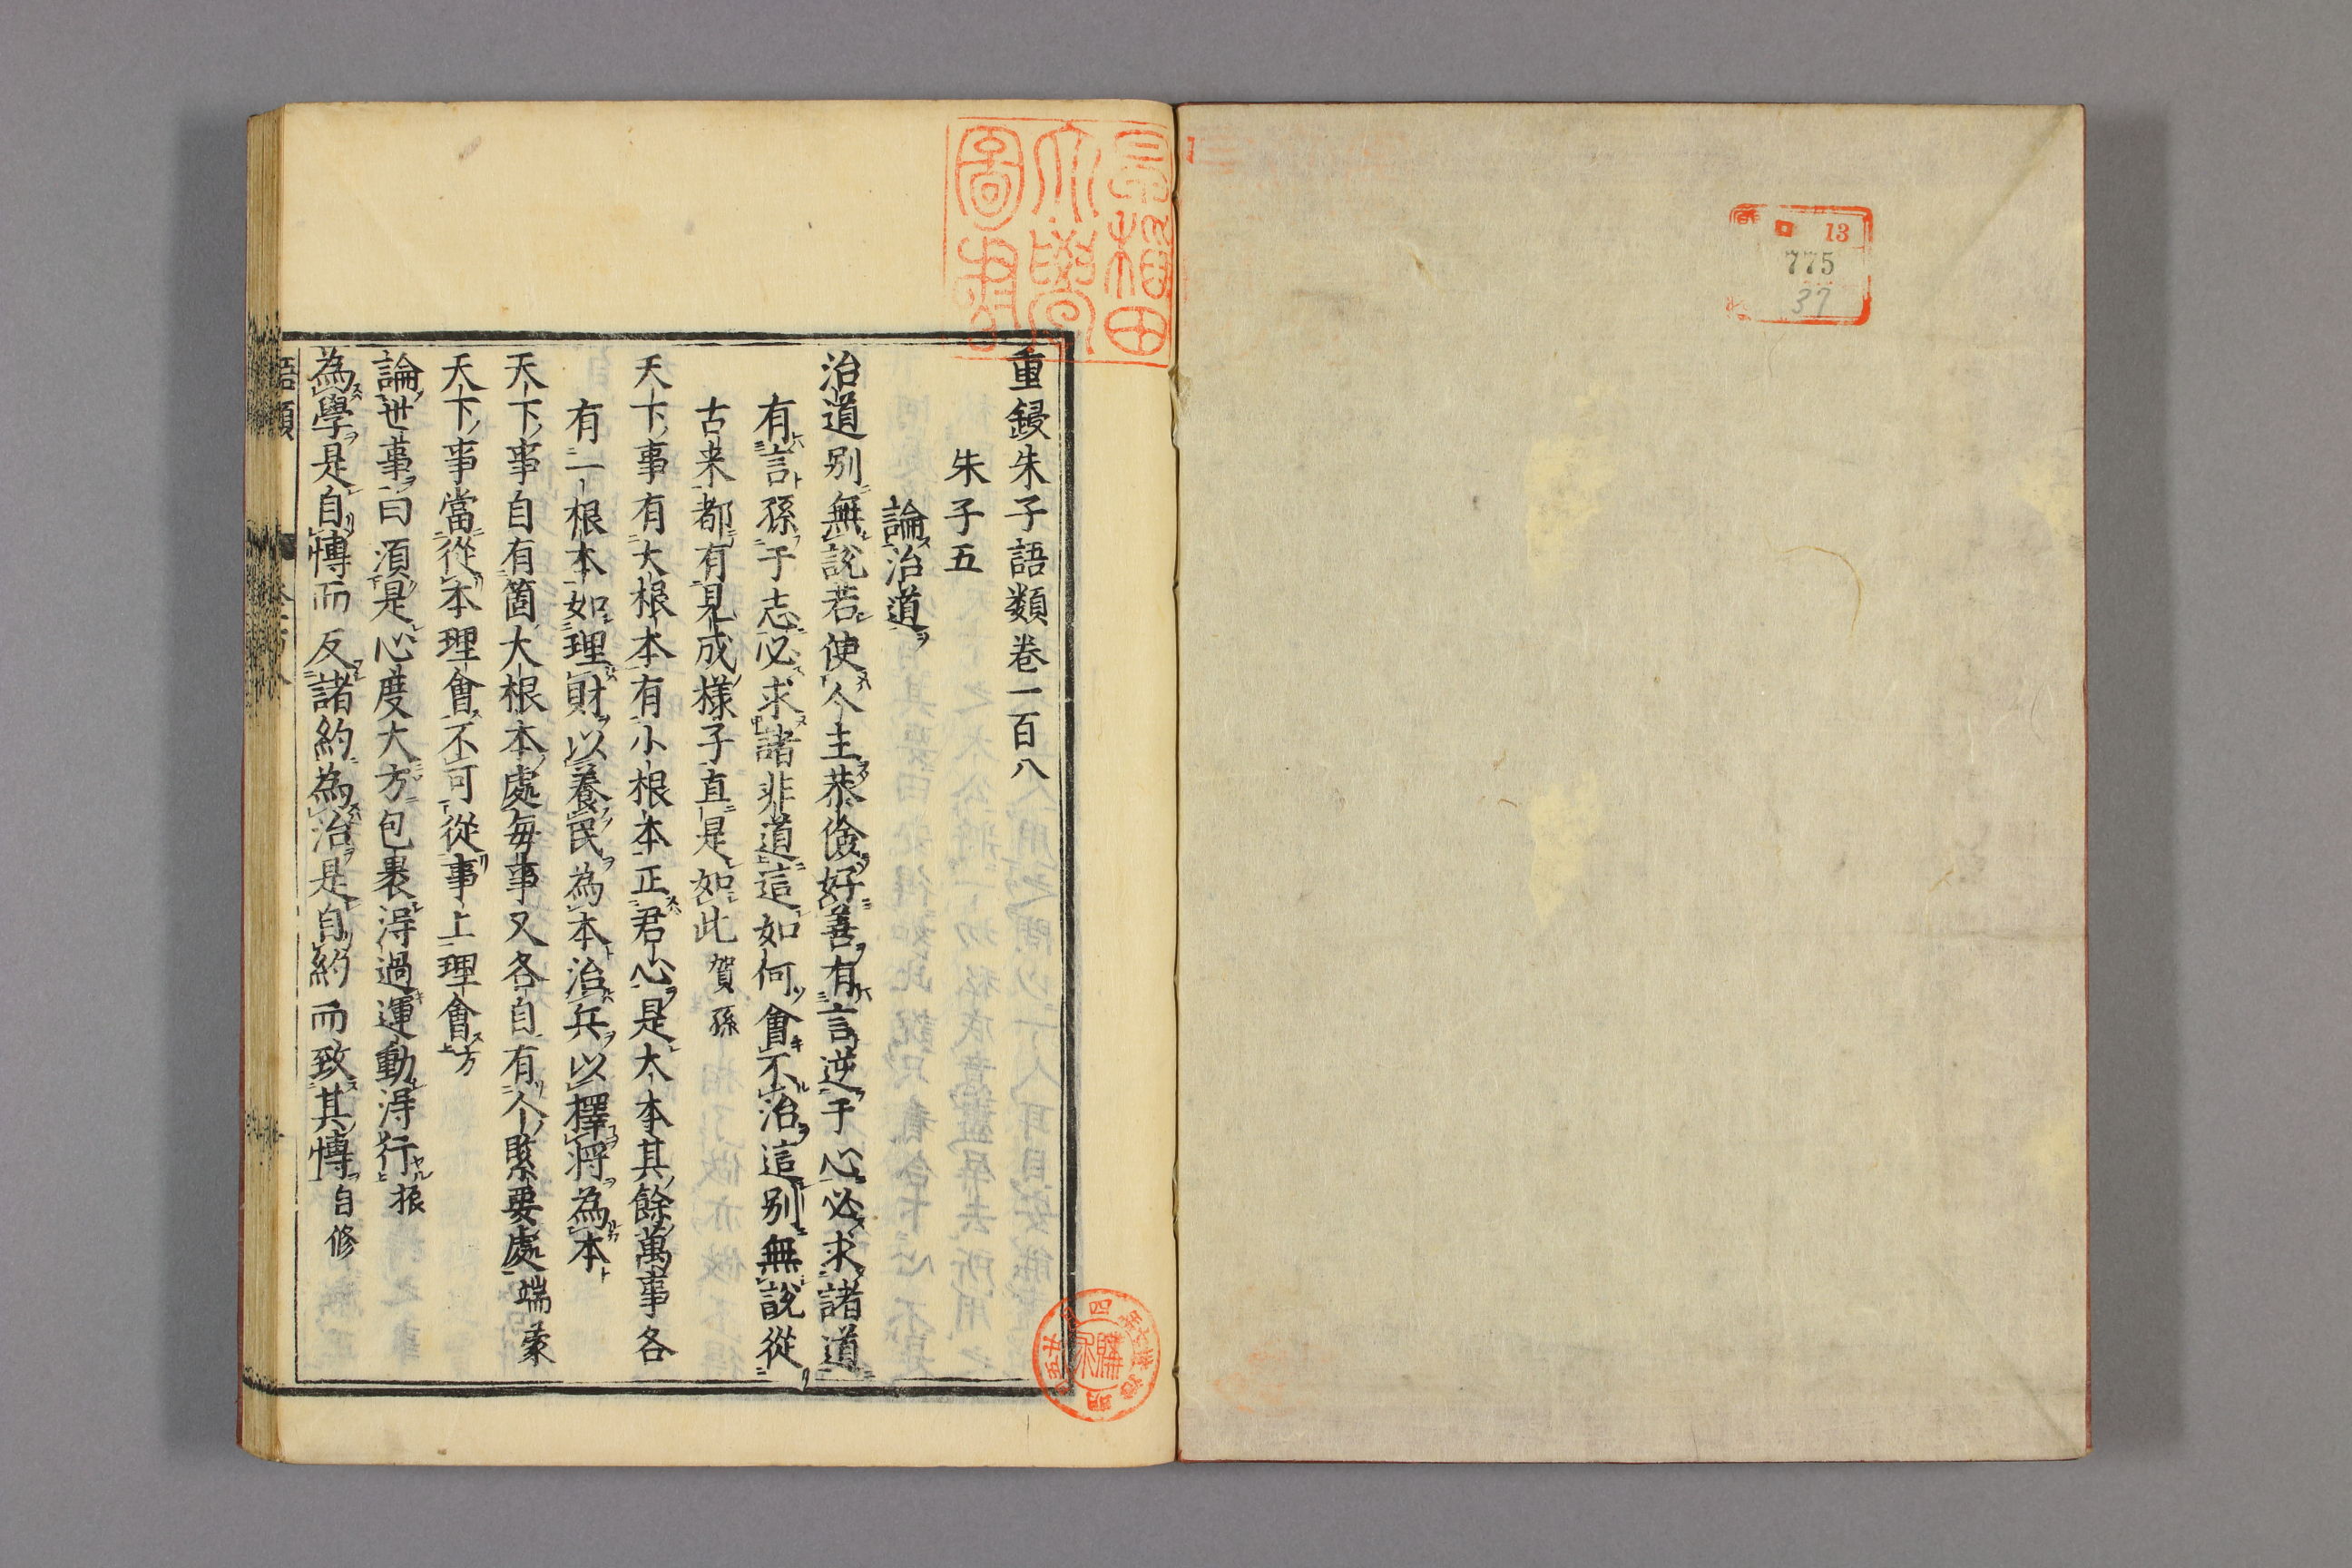 13
775
37
早稲田
大學
圖書
重鋟朱子語類卷一百八
朱子五
論治道
治道別無說若使人主恭儉好善有言逆于心必求諸道
有言孫于志必求諸非道這如何會不治這別無說從
古来都有見成樣子直是如此 賀孫
天下事有大根本有小根本正君心是大本其餘萬事各
有一根本如理財以養民為本治兵以擇將為本
天下事自有箇大根本處每事又各自有个緊要處 端蒙
天下事當從本理會不可從事上理會 方
論世事曰須是心度大方包裹得過運動得行 振
為學是自博而反諸約為治是自約而致其博 自修
語類